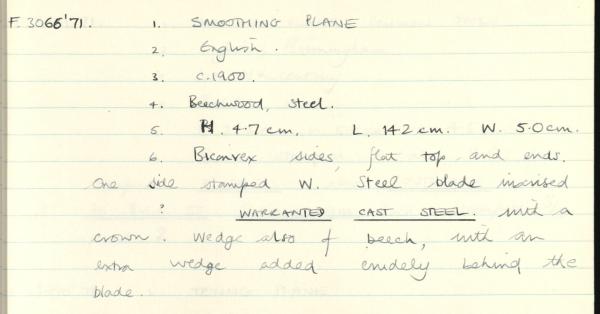 F. 3066'71. 1. SMOOTHING PLANE
2. English.
3. c.1900.
4. Beechwood, steel.
5. H. 4.7 cm. L. 14.2 cm. W. 5.0 cm.
6. Biconvex sides, flat top and ends.
One side stamped W. Steel blade incised
? WARRANTED CAST STEEL. with a
crown. Wedge also of beech, with an
extra wedge added crudely behind the
blade.